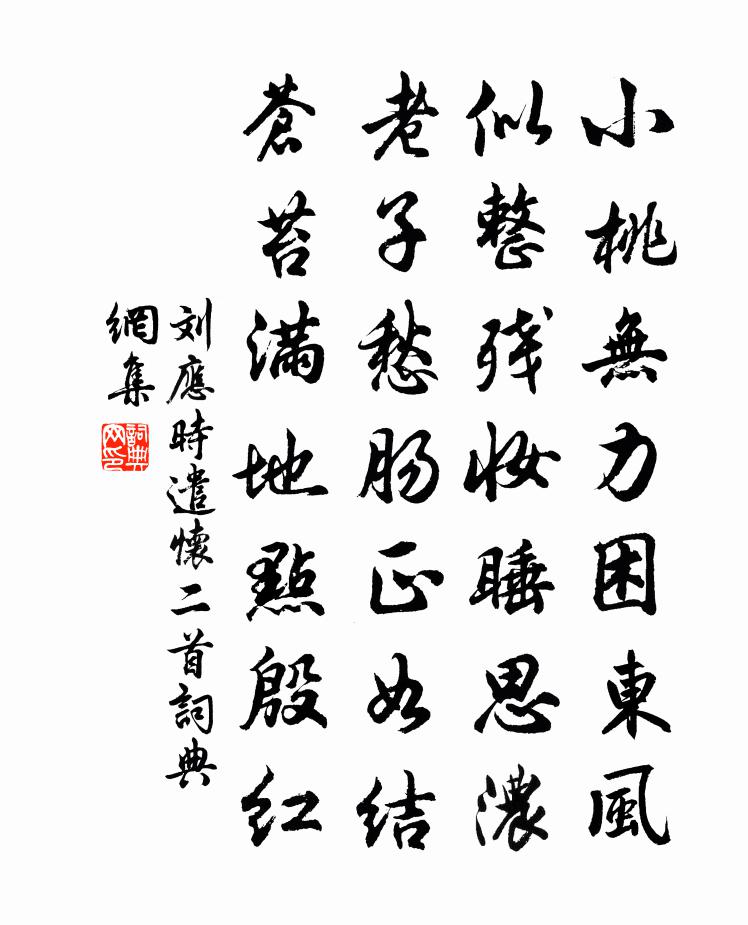 小桃無力困東風
似整残妝睡思濃
老子愁肠正如结
蒼苔滿地點殷红
刘應時遣懷二首詞典
網集
詞典
网印